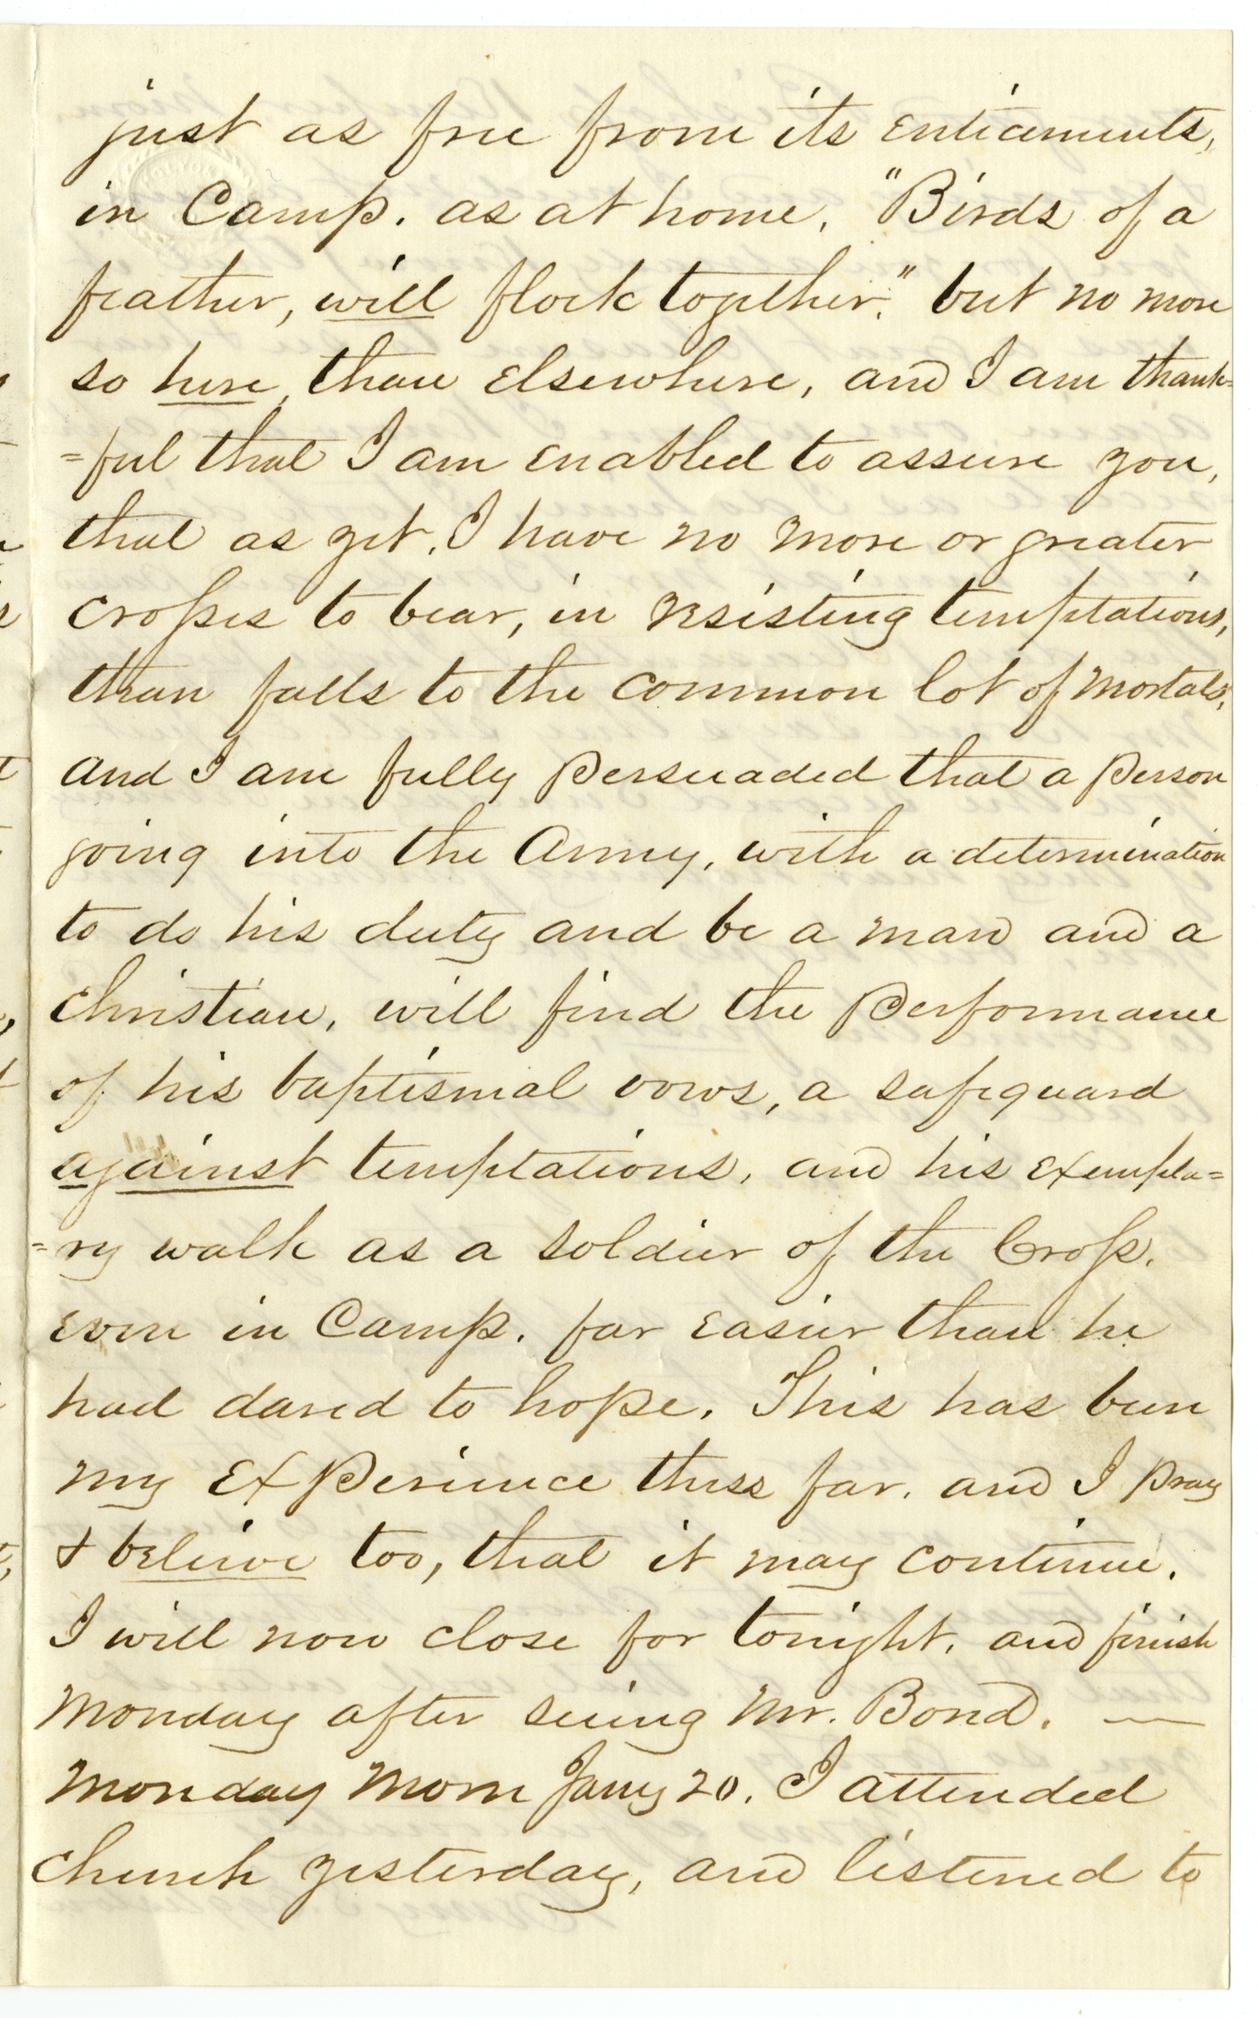 just as free from its enticements,
in Camp. as at home, "Birds of a
feather, will flock together." but no more
so here, than elsewhere, and I am thank=
=ful that I am enabled to assure you,
that as yet, I have no more or greater
crosses to bear, in resisting temptations,
than falls to the common lot of mortals,
and I am fully persuaded that a person
going into the Army, with a determination
to do his duty and be a man and a
christian, will find the performance
of his baptismal vows, a safeguard
against temptations, and his exempla=
=ry walk as a soldier of the Cross.
even in Camp. far easier than he
had dared to hope. This has been
my experience thus far. and I pray
& believe too, that it may continue.
I will now close for tonight, and finish
Monday after seeing Mr. Bond. —
Monday Morn Jany 20. I attended
church yesterday, and listened to